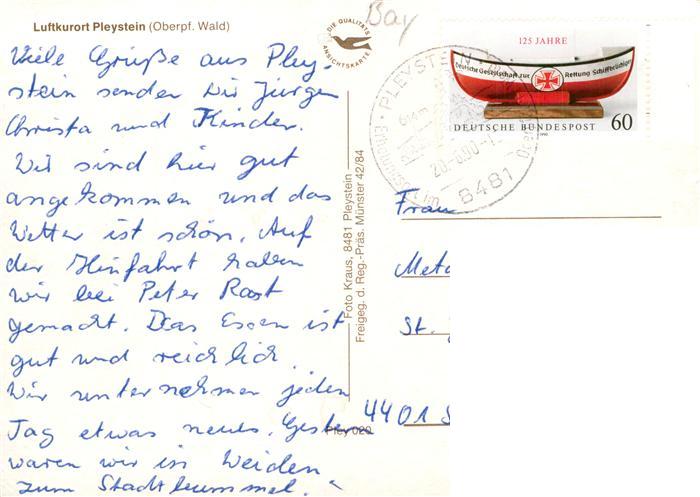 Luftkurort Pleystein (Oberpf. Wald)
Viele Grüße aus Pley-
stein senden Dir Jürgen
Christa und Kinder.
Wir sind hier gut
angekommen und das
Wetter ist schön. Auf
der Hinfahrt haben
wir bei Peter Rast
gemacht. Das Essen ist
gut und reichlich.
Wir unternehmen jeden
Tag etwas neues. Gestern
waren wir in Weiden
zum Stadtbummel.
Pley 029
DIE QUALITÄTS
ANSICHTSKARTE
Foto Kraus, 8481 Pleystein
Freigeg. d. Reg.-Präs. Münster 42/84
Bay
PLEYSTEIN
614 m
20.-8.90-1
8481
125 JAHRE
Deutsche Gesellschaft zur Rettung Schiffbrüchiger
DEUTSCHE BUNDESPOST 60
1990
Frau
Meta
St.
4401 S